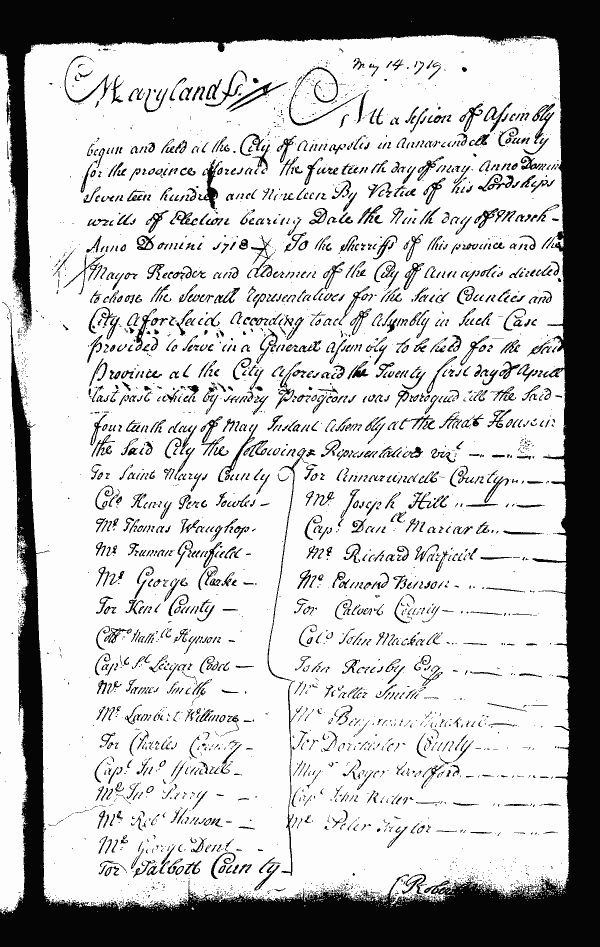 May 14. 1719.
Maryland ss.
Att a Session of Assembly
begun and held at the City of Annapolis in Annarundell County
for the province aforesaid the fureteenth day of may Anno Domini
Seventeen hundred and Nineteen By Virtue of his Lordships
writts of Election bearing Date the Ninth day of March
Anno Domini 1718 To the Sherriffs of this province and the
Mayor Recorder and Aldermen of the City of Annapolis directed
to choose the Severall representatives for the Said Counties and
City Aforesaid According to act of Assembly in Such Case
provided to Serve in a Generall Assembly to be held for the Said
Province at the City Aforesaid the Twenty first day of Aprill
last past which by sundry Prorogcons was prorogued till the Said
fourteenth day of May Instant Assembly at the Stadt House in
the Said City the following Representatives vizt
For Saint Marys County
Colo Henry Pere Jowles
Mr Thomas Waughop
Mr Truman Greenfield
Mr George Clarke
For Kent County
Nathll Hynson
Capt St Legar Codd
Mr James Smith
Mr Lambert Willmore
For Charles County
Capt Jno
Mr Jno Parry
Mr Robt Hanson
Mr George Dent
For Talbott County
For Annarundell County
Mr Joseph Hill
Capt Danll Mariarte
Mr Richard Warfield
Mr Edmond Benson
For Calvert County
Colo John Mackall
John Rousby Esq
Mr Walter Smith
Mr Benjamin Mackall
For Dorchester County
Majr Roger Woolford
Capt John Rider
Mr Peter Taylor